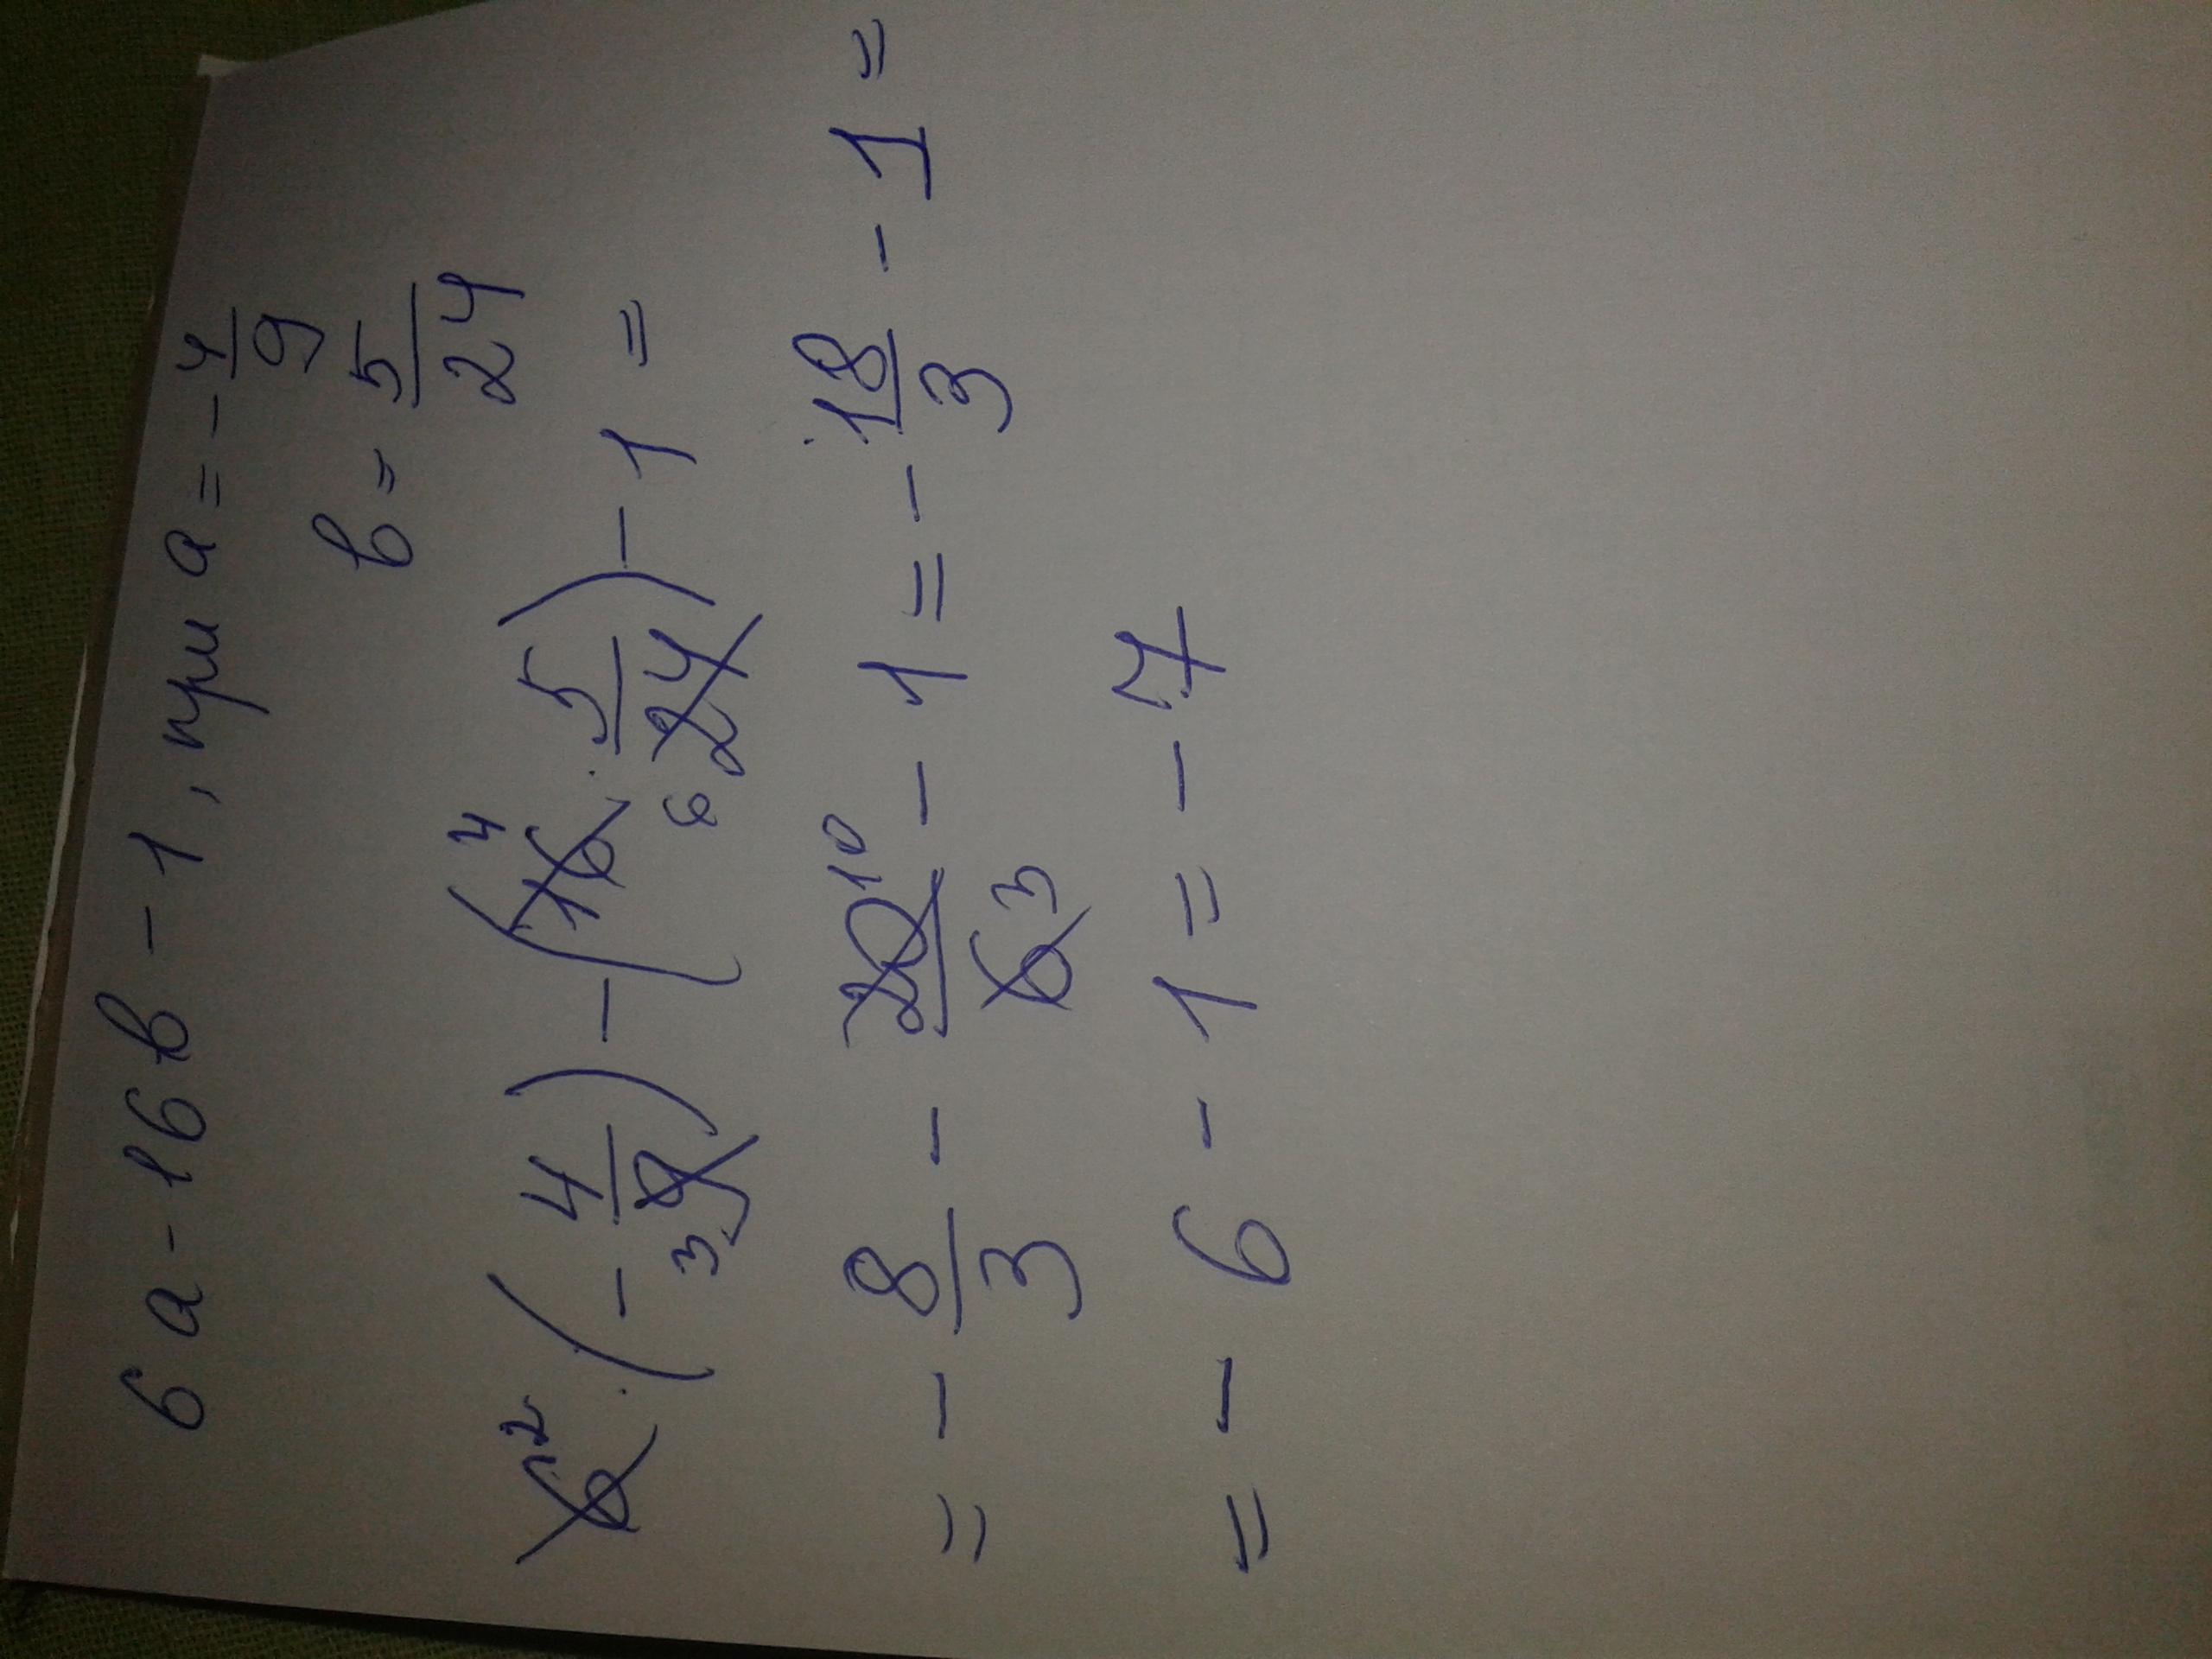 6a - 16в - 1, при a = - 4/9
в = 5/24
6² · (- 4/9 3) - (16 4 · 5/24 6) - 1 =
= - 8/3 - 20 10/6 3 - 1 = - 18/3 - 1 =
= - 6 - 1 = - 7